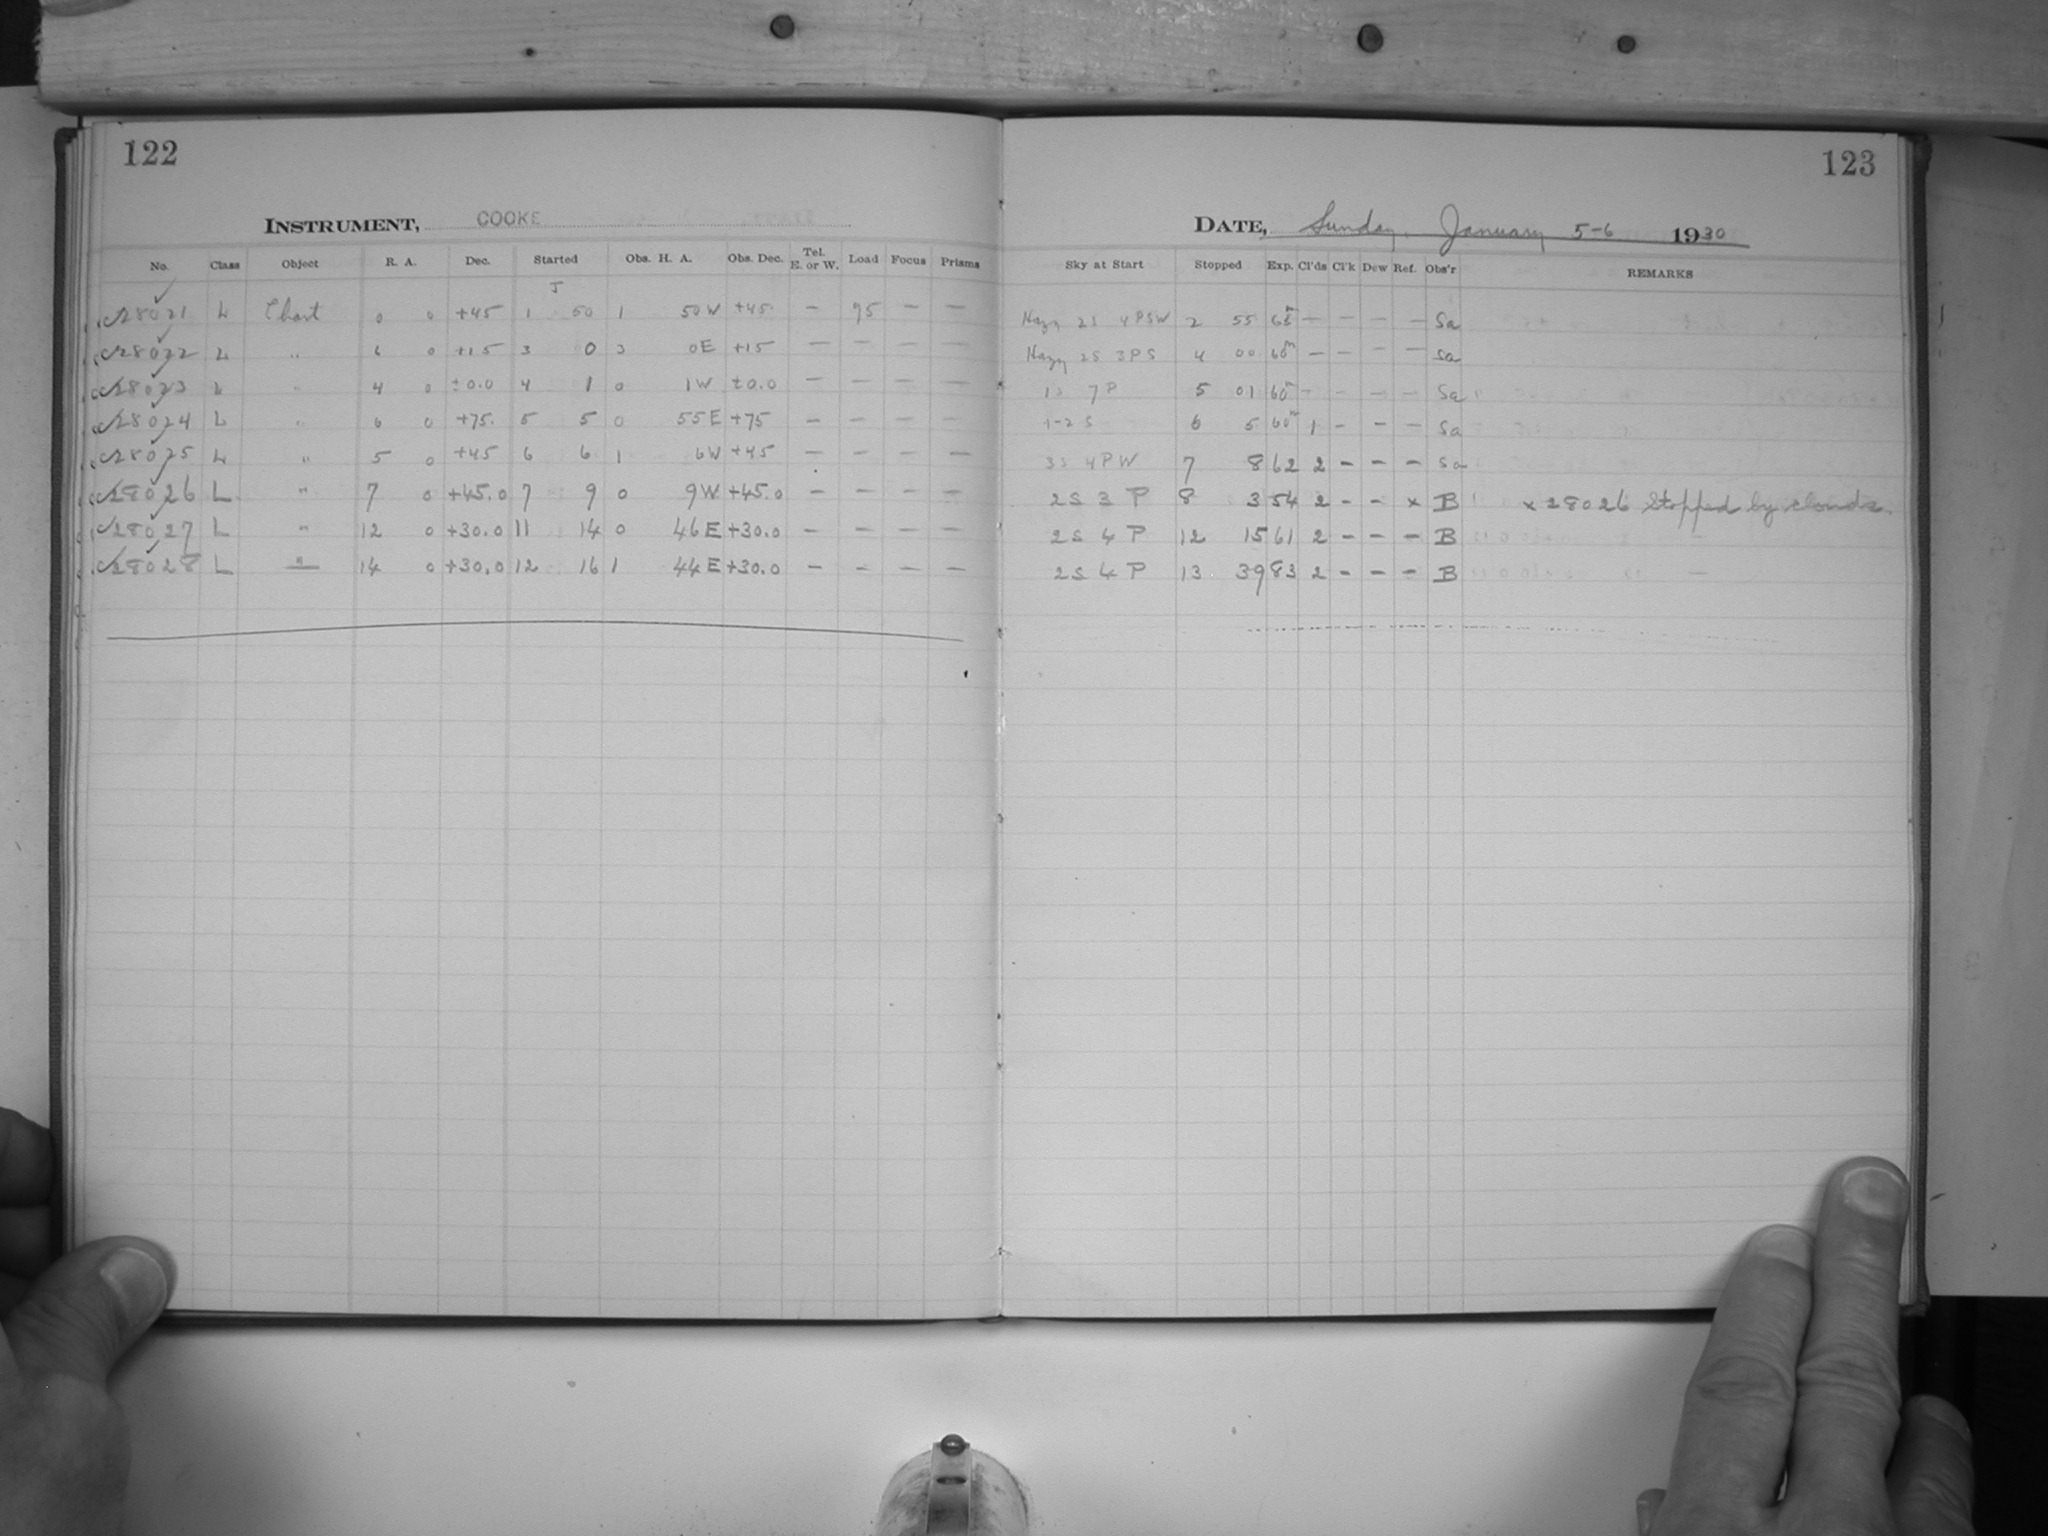 122
INSTRUMENT, COOKE
No. Class Object R. A. Dec. Started Obs. H. A. Obs. Dec. Tel. E. or W. Load Focus Prisms
28021 L Chart 0 0 +45 1 50 1 50W +45 — 95 — —
28022 L " 6 0 +15 3 0 3 0E +15 — — — —
28023 L " 4 0 ±0.0 4 1 0 1W ±0.0 — — — —
28024 L " 6 0 +75 5 5 0 55E +75 — — — —
28025 L " 5 0 +45 6 6 1 6W +45 — — — —
28026 L " 7 0 +45.0 7 9 0 9W +45.0 — — — —
28027 L " 12 0 +30.0 11 14 0 46E +30.0 — — — —
28028 L " 14 0 +30.0 12 16 1 44E +30.0 — — — —
123
DATE, Sunday, January 5-6 1930
Sky at Start Stopped Exp. Cl'ds Cl'k Dew Ref. Obs'r REMARKS
Hazy 2S 4PSW 2 55 65m — — — — Sa
Hazy 2S 3PS 4 00 60m — — — — Sa
1S 7P 5 01 60m — — — — Sa
1-2S 6 5 60m 1 — — — Sa
3S 4PW 7 8 62 2 — — — Sa
2S 3P 8 3 54 2 — — x B x 28026 Stopped by clouds.
2S 4P 12 15 61 2 — — — B
2S 4P 13 39 83 2 — — — B